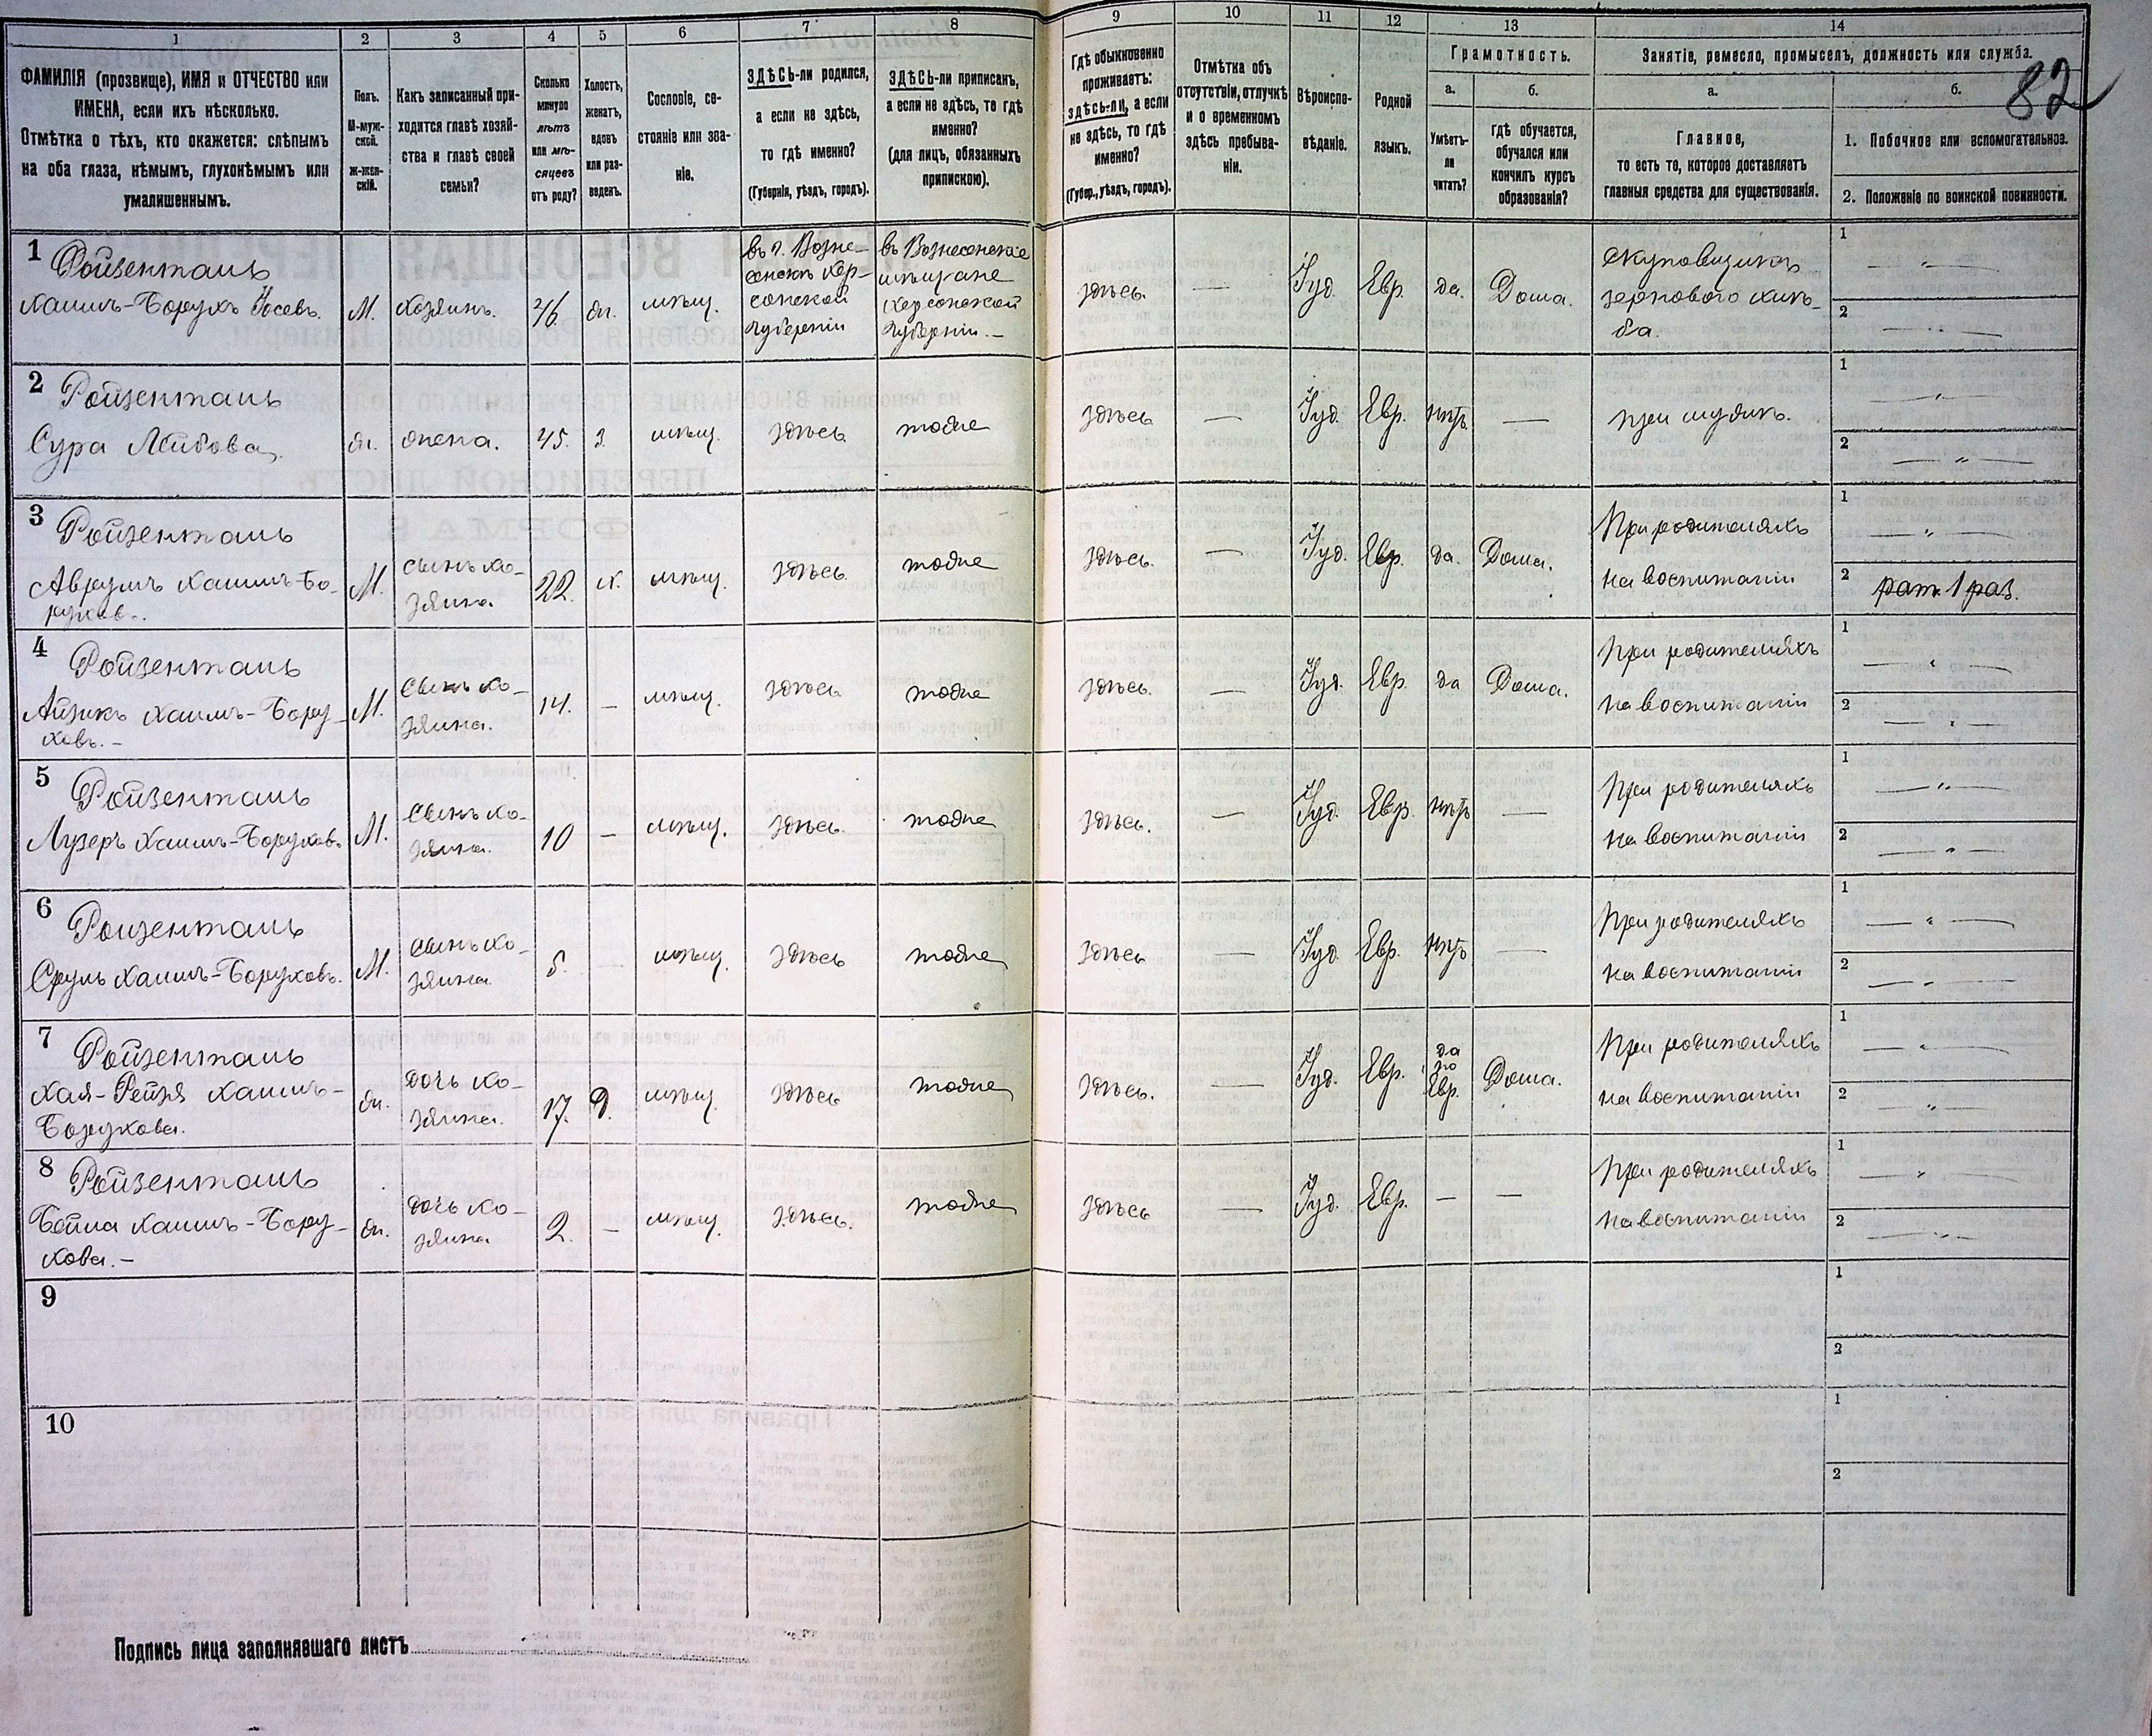 1 2 3 4 5 6 7 8
ФАМИЛІЯ (прозвище), ИМЯ и ОТЧЕСТВО или
ИМЕНА, если ихъ нѣсколько.
Отмѣтка о тѣхъ, кто окажется: слѣпымъ
на оба глаза, нѣмымъ, глухонѣмымъ или
умалишеннымъ.
Полъ.
М-муж-
ской.
ж-жен-
скій.
Какъ записанный при-
ходится главѣ хозяй-
ства и главѣ своей
семьи?
Сколько
минуло
лѣтъ
или мѣ-
сяцевъ
отъ роду?
Холостъ,
женатъ,
вдовъ
или раз-
веденъ.
Сословіе, со-
стояніе или зва-
ніе.
ЗДѢСЬ-ли родился,
а если не здѣсь,
то гдѣ именно?
(Губернія, уѣздъ, городъ).
ЗДѢСЬ-ли приписанъ,
а если не здѣсь, то гдѣ
именно?
(для лицъ, обязанныхъ
припискою).
9 10 11 12 13 14
Гдѣ обыкновенно
проживаетъ:
ЗДѢСЬ-ЛИ, а если
не здѣсь, то гдѣ
именно?
(Губер., уѣздъ, городъ).
Отмѣтка объ
отсутствіи, отлучкѣ
и о временномъ
здѣсь пребыва-
ніи.
Вѣроиспо-
вѣданіе.
Родной
языкъ.
Грамотность.
а.
Умѣетъ-
ли
читать?
б.
гдѣ обучается,
обучался или
кончилъ курсъ
образованія?
Занятіе, ремесло, промыселъ, должность или служба.
82
а.
Главное,
то есть то, которое доставляетъ
главныя средства для существованія.
б.
1. Побочное или вспомогательное.
2. Положеніе по воинской повинности.
1 Ройзенталь
Хаимъ-Борухъ Іосевъ.
М.
хозяинъ.
46.
жн.
мѣщ.
въ г. Возне-
сенскъ Хер-
сонской
губерніи
въ Вознесенскѣ
мѣщане
Херсонской
губерніи. -
здѣсь.
—
Іуд.
Евр.
да.
Дома.
скупщикъ
зернового хлѣ-
ба.
1 — " —
2 — " —
2 Ройзенталь
Сура Лейбова.
ж.
жена.
45.
з.
мѣщ.
здѣсь
тоже
здѣсь
—
Іуд.
Евр.
нѣтъ.
—
при мужѣ.
1 — " —
2 — " —
3 Ройзенталь
Аврумъ Хаимъ-Бо-
рухов.
М.
сынъ хо-
зяина
22.
х.
мѣщ.
здѣсь
тоже
здѣсь.
—
Іуд.
Евр.
да.
Дома.
При родителяхъ
на воспитаніи
1 — " —
2 рат. 1 раз.
4 Ройзенталь
Айзикъ Хаимъ-Бору-
ховъ. -
М.
сынъ хо-
зяина.
14.
—
мѣщ.
здѣсь
тоже
здѣсь.
—
Іуд.
Евр.
да
Дома.
При родителяхъ
на воспитаніи
1 — " —
2 — " —
5 Ройзенталь
Лузеръ Хаимъ-Борухов.
М.
сынъ хо-
зяина.
10
—
мѣщ.
здѣсь.
тоже
здѣсь.
—
Іуд.
Евр.
нѣтъ
—
При родителяхъ
на воспитаніи
1 — " —
2 — " —
6 Ройзенталь
Сруль Хаимъ-Боруховъ.
М.
сынъ хо-
зяина
5.
мѣщ.
здѣсь
тоже
здѣсь
—
Іуд.
Евр.
нѣтъ
—
При родителяхъ
на воспитаніи
1 — " —
2 — " —
7 Ройзенталь
Хая-Рейзя Хаимъ-
Борухова.
ж.
дочь хо-
зяина.
17.
д.
мѣщ.
здѣсь
тоже
здѣсь.
—
Іуд.
Евр.
да
по
Евр.
Дома.
При родителяхъ
на воспитаніи
1 — " —
2 — " —
8 Ройзенталь
Бейла Хаимъ-Бору-
хова. -
ж.
дочь хо-
зяина
2.
—
мѣщ.
здѣсь.
тоже
здѣсь
—
Іуд.
Евр.
—
—
При родителяхъ
на воспитаніи
1 — " —
2 — " —
9
1
2
10
1
2
Подпись лица заполнявшаго листъ